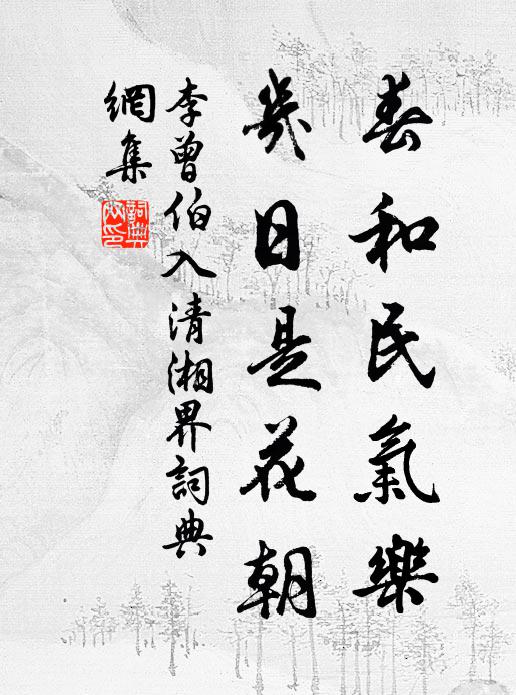 春和民氣樂
幾日是花朝
李曾伯入清湘界詞典
網集
詞典網印